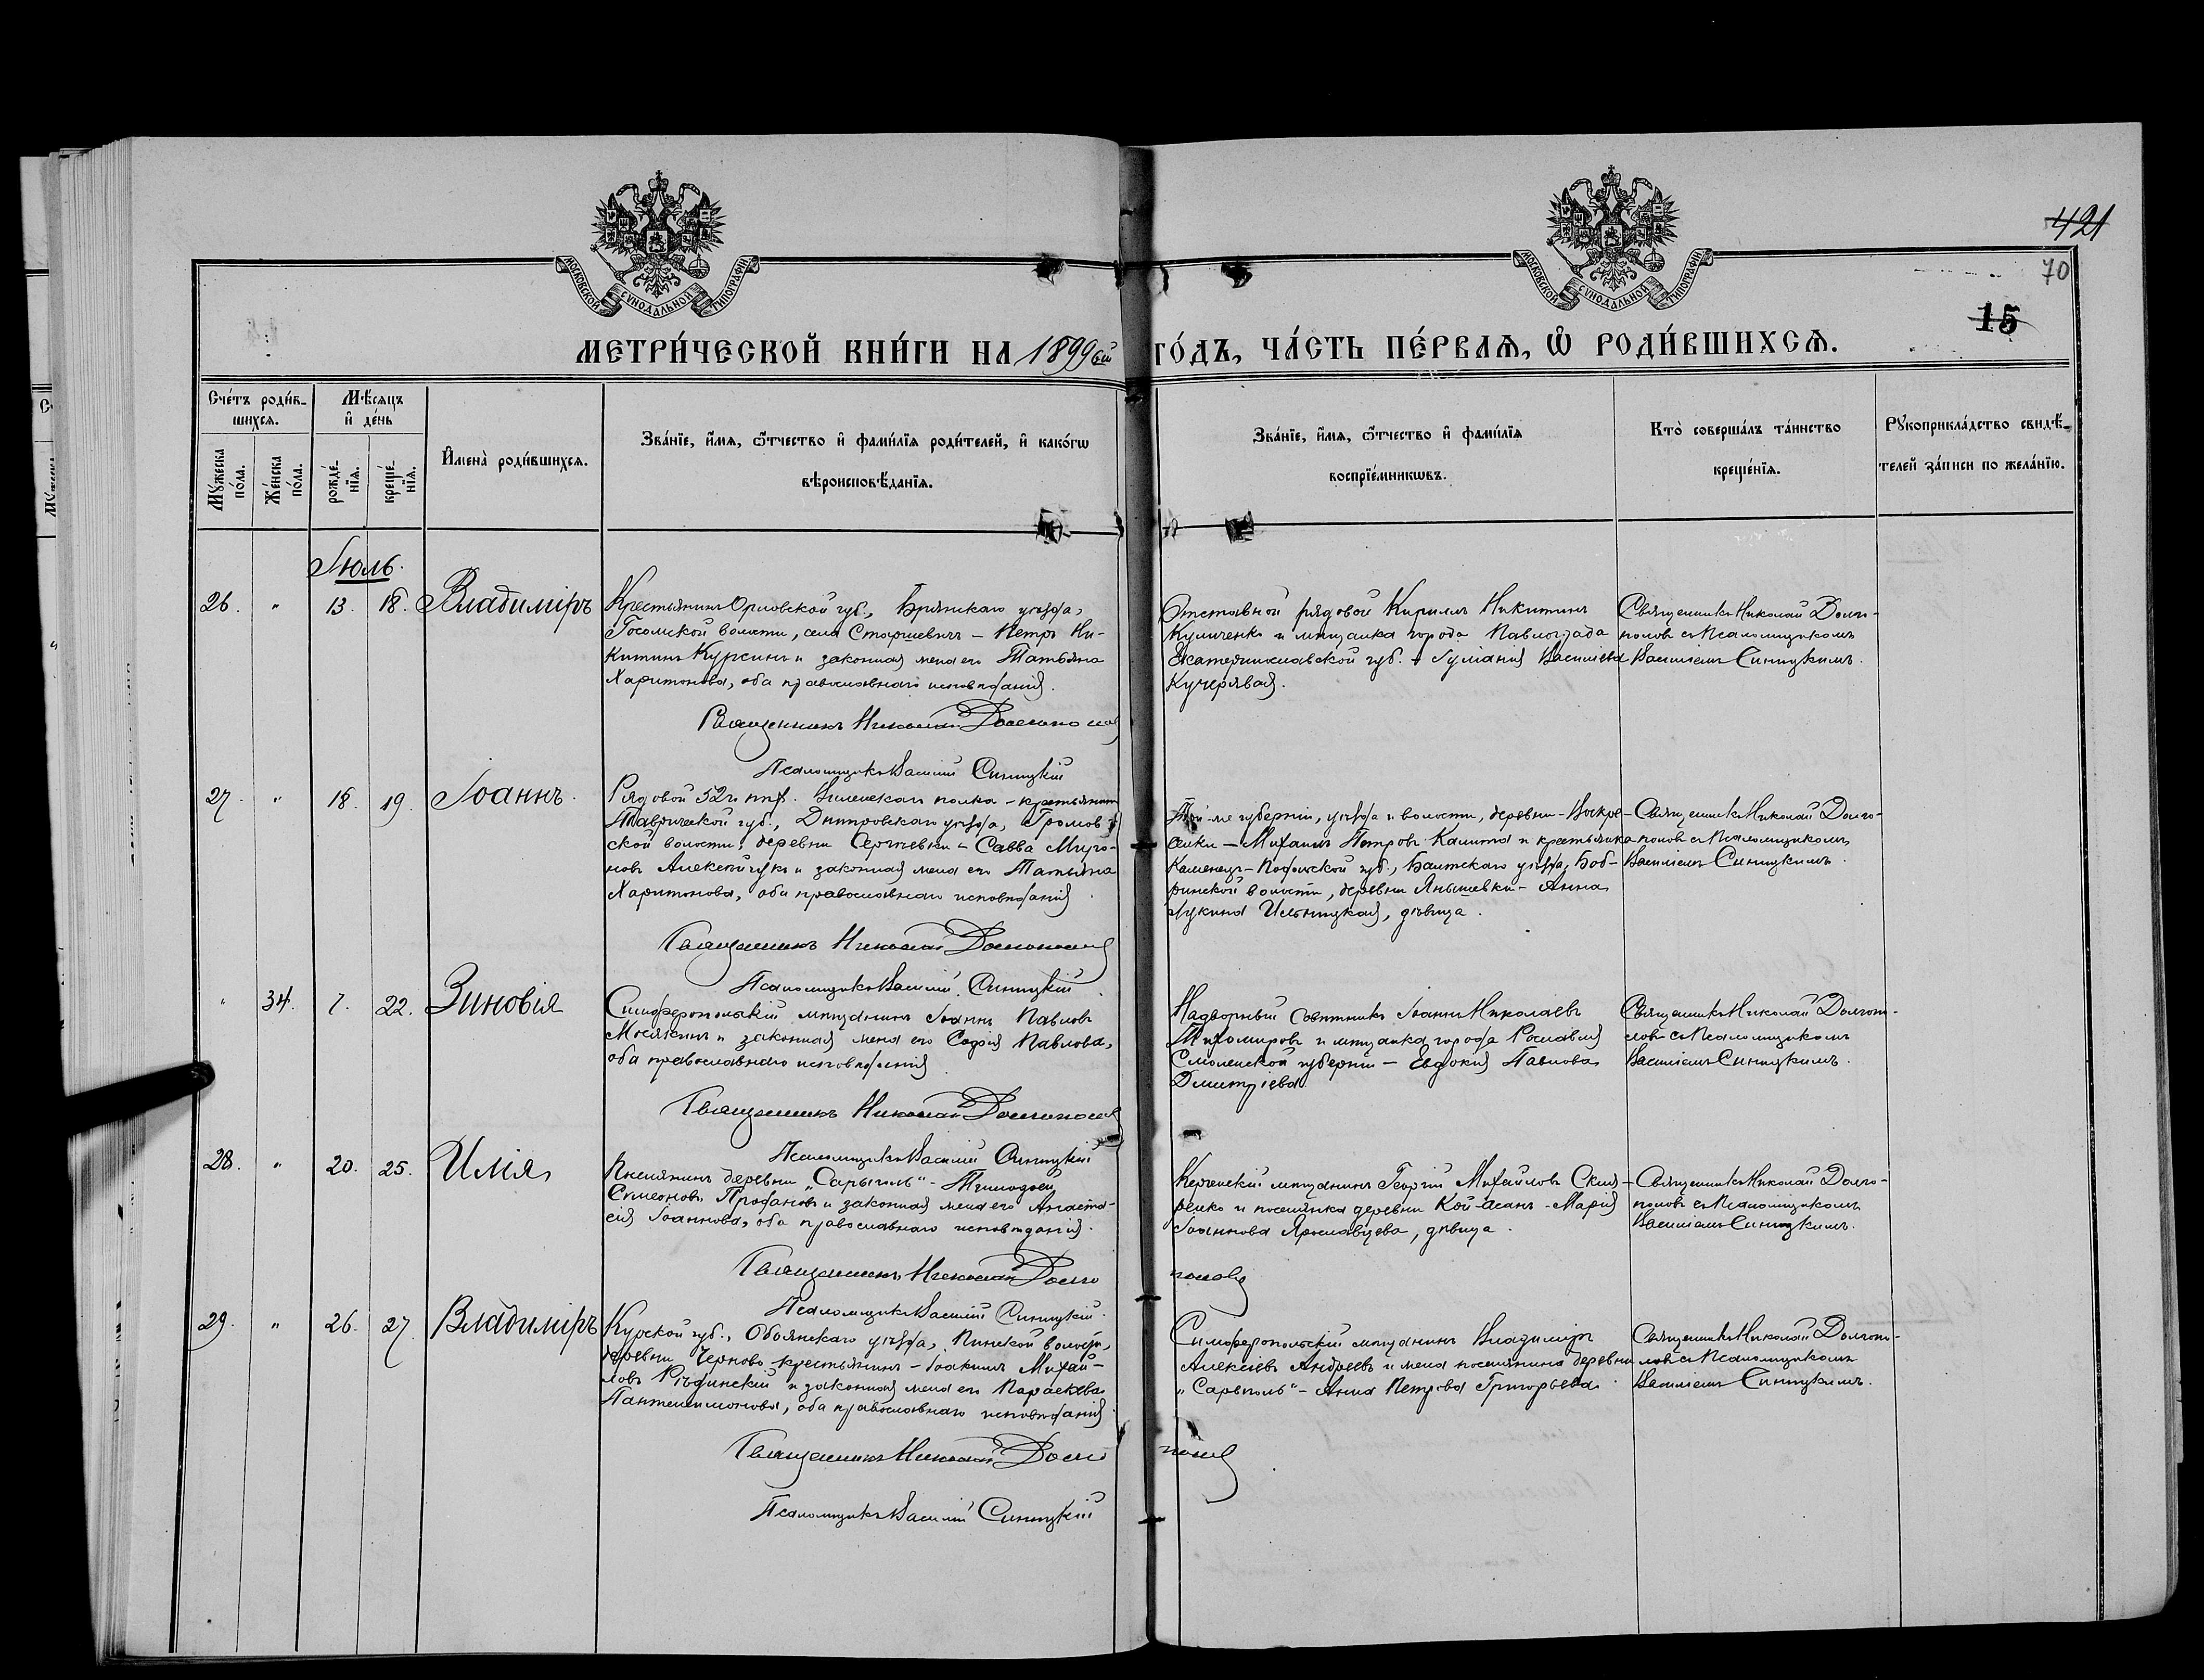 МОСКОВСКОЙ СѴНОДАЛЬНОЙ ТИПОГРАФІИ
МОСКОВСКОЙ СѴНОДАЛЬНОЙ ТИПОГРАФІИ
421
70
15
МЕТРИ́ЧЕСКОЙ КНИ́ГИ НА 1899 ый ГО́ДЪ, ЧА́СТЬ ПЕ́РВАѦ, Ѡ҆ РОДИ́ВШИХСѦ.
Сче́тъ роди́в-
шихсѧ.
Мѣ́сѧцъ
и҆ де́нь
Мꙋ́жеска
по́ла.
Же́нска
по́ла.
рожде́-
нїѧ.
креще́-
нїѧ.
И҆мена̀ роди́вшихсѧ.
Зва́нїе, и҆́мѧ, ѻ҆́тчество и҆ фами́лїѧ роди́телей, и҆ како́гѡ
вѣроисповѣ́данїѧ.
Зва́нїе, и҆́мѧ, ѻ҆́тчество и҆ фами́лїѧ
воспрїе́мникѡвъ.
Кто̀ соверша́лъ та́инство
креще́нїѧ.
Рꙋкоприкла́дство свидѣ́-
телей за́писи по жела́нїю.
Іюль.
26. " 13. 18. Владиміръ
Крестьянинъ Орловской губ., Брянскаго уѣзда,
волости, села – Петръ Ни-
китинъ Курсинъ и законная жена его Татьяна
Харитонова, оба православнаго исповѣданія.
Священникъ Николай Долгополовъ
Псаломщикъ Василій Синицкій
Отставной рядовой Кириллъ Никитинъ
Куличенко и мѣщанка города Павлограда
Екатеринославской губ. – Іуліанія Василіева
Кучерявая.
Священникъ Николай Долго-
половъ съ Псаломщикомъ
Василіемъ Синицкимъ.
27. " 18. 19. Іоаннъ.
Рядовой 52го пѣх. Виленскаго полка – крестьянинъ
Таврической губ., Днѣпровскаго уѣзда, Громов-
ской волости, деревни Сергѣевки – Савва Миро-
новъ и законная жена его Татьяна
Харитонова, оба православнаго исповѣданія.
Священникъ Николай Долгополовъ
Псаломщикъ Василій Синицкій
Той-же губерніи, уѣзда и волости, деревни – Воскре-
сенки – Михаилъ Петровъ Калита и крестьянка
Каменецъ-Подольской губ., Балтскаго уѣзда, Боб-
ринской волости, деревни Янышевки – Анна
Лукина Ильницкая, дѣвица.
Священникъ Николай Долго-
половъ съ Псаломщикомъ
Василіемъ Синицкимъ.
" 34. 7. 22. Зиновія
Симферопольскій мѣщанинъ Іоаннъ Павловъ
Мосякинъ и законная жена его Софія Павлова,
оба православнаго исповѣданія.
Священникъ Николай Долгополовъ
Псаломщикъ Василій Синицкій
Надворный Совѣтникъ Іоаннъ Николаевъ
Тихомировъ и мѣщанка города Рославля
Смоленской губерніи – Евдокія Павлова
Дмитріева
Священникъ Николай Долгопо-
ловъ съ Псаломщикомъ
Василіемъ Синицкимъ.
28. " 20. 25. Илія,
Поселянинъ деревни „Сарыголь“ – Тимофей
Симеоновъ Профановъ и законная жена его Анаста-
сія Іоаннова, оба православнаго исповѣданія.
Священникъ Николай Долгополовъ
Псаломщикъ Василій Синицкій.
Керченскій мѣщанинъ Георгій Михайловъ Скля-
ренко и поселянка деревни Кой-Асанъ – Марія
Іоаннова Ярославцева, дѣвица.
Священникъ Николай Долго-
половъ съ Псаломщикомъ
Василіемъ Синицкимъ.
29. " 26. 27. Владиміръ
Курской губ., Обоянскаго уѣзда, Пенской волости,
деревни Черново крестьянинъ – Іоакимъ Михай-
ловъ и законная жена его Параскева
Пантелеимонова, оба православнаго исповѣданія.
Священникъ Николай Долгополовъ
Псаломщикъ Василій Синицкій
Симферопольскій мѣщанинъ Владиміръ
Алексіевъ Андреевъ и жена поселянина деревни
„Сарыголь“ – Анна Петрова Григорьева.
Священникъ Николай Долгопо-
ловъ съ Псаломщикомъ
Василіемъ Синицкимъ.